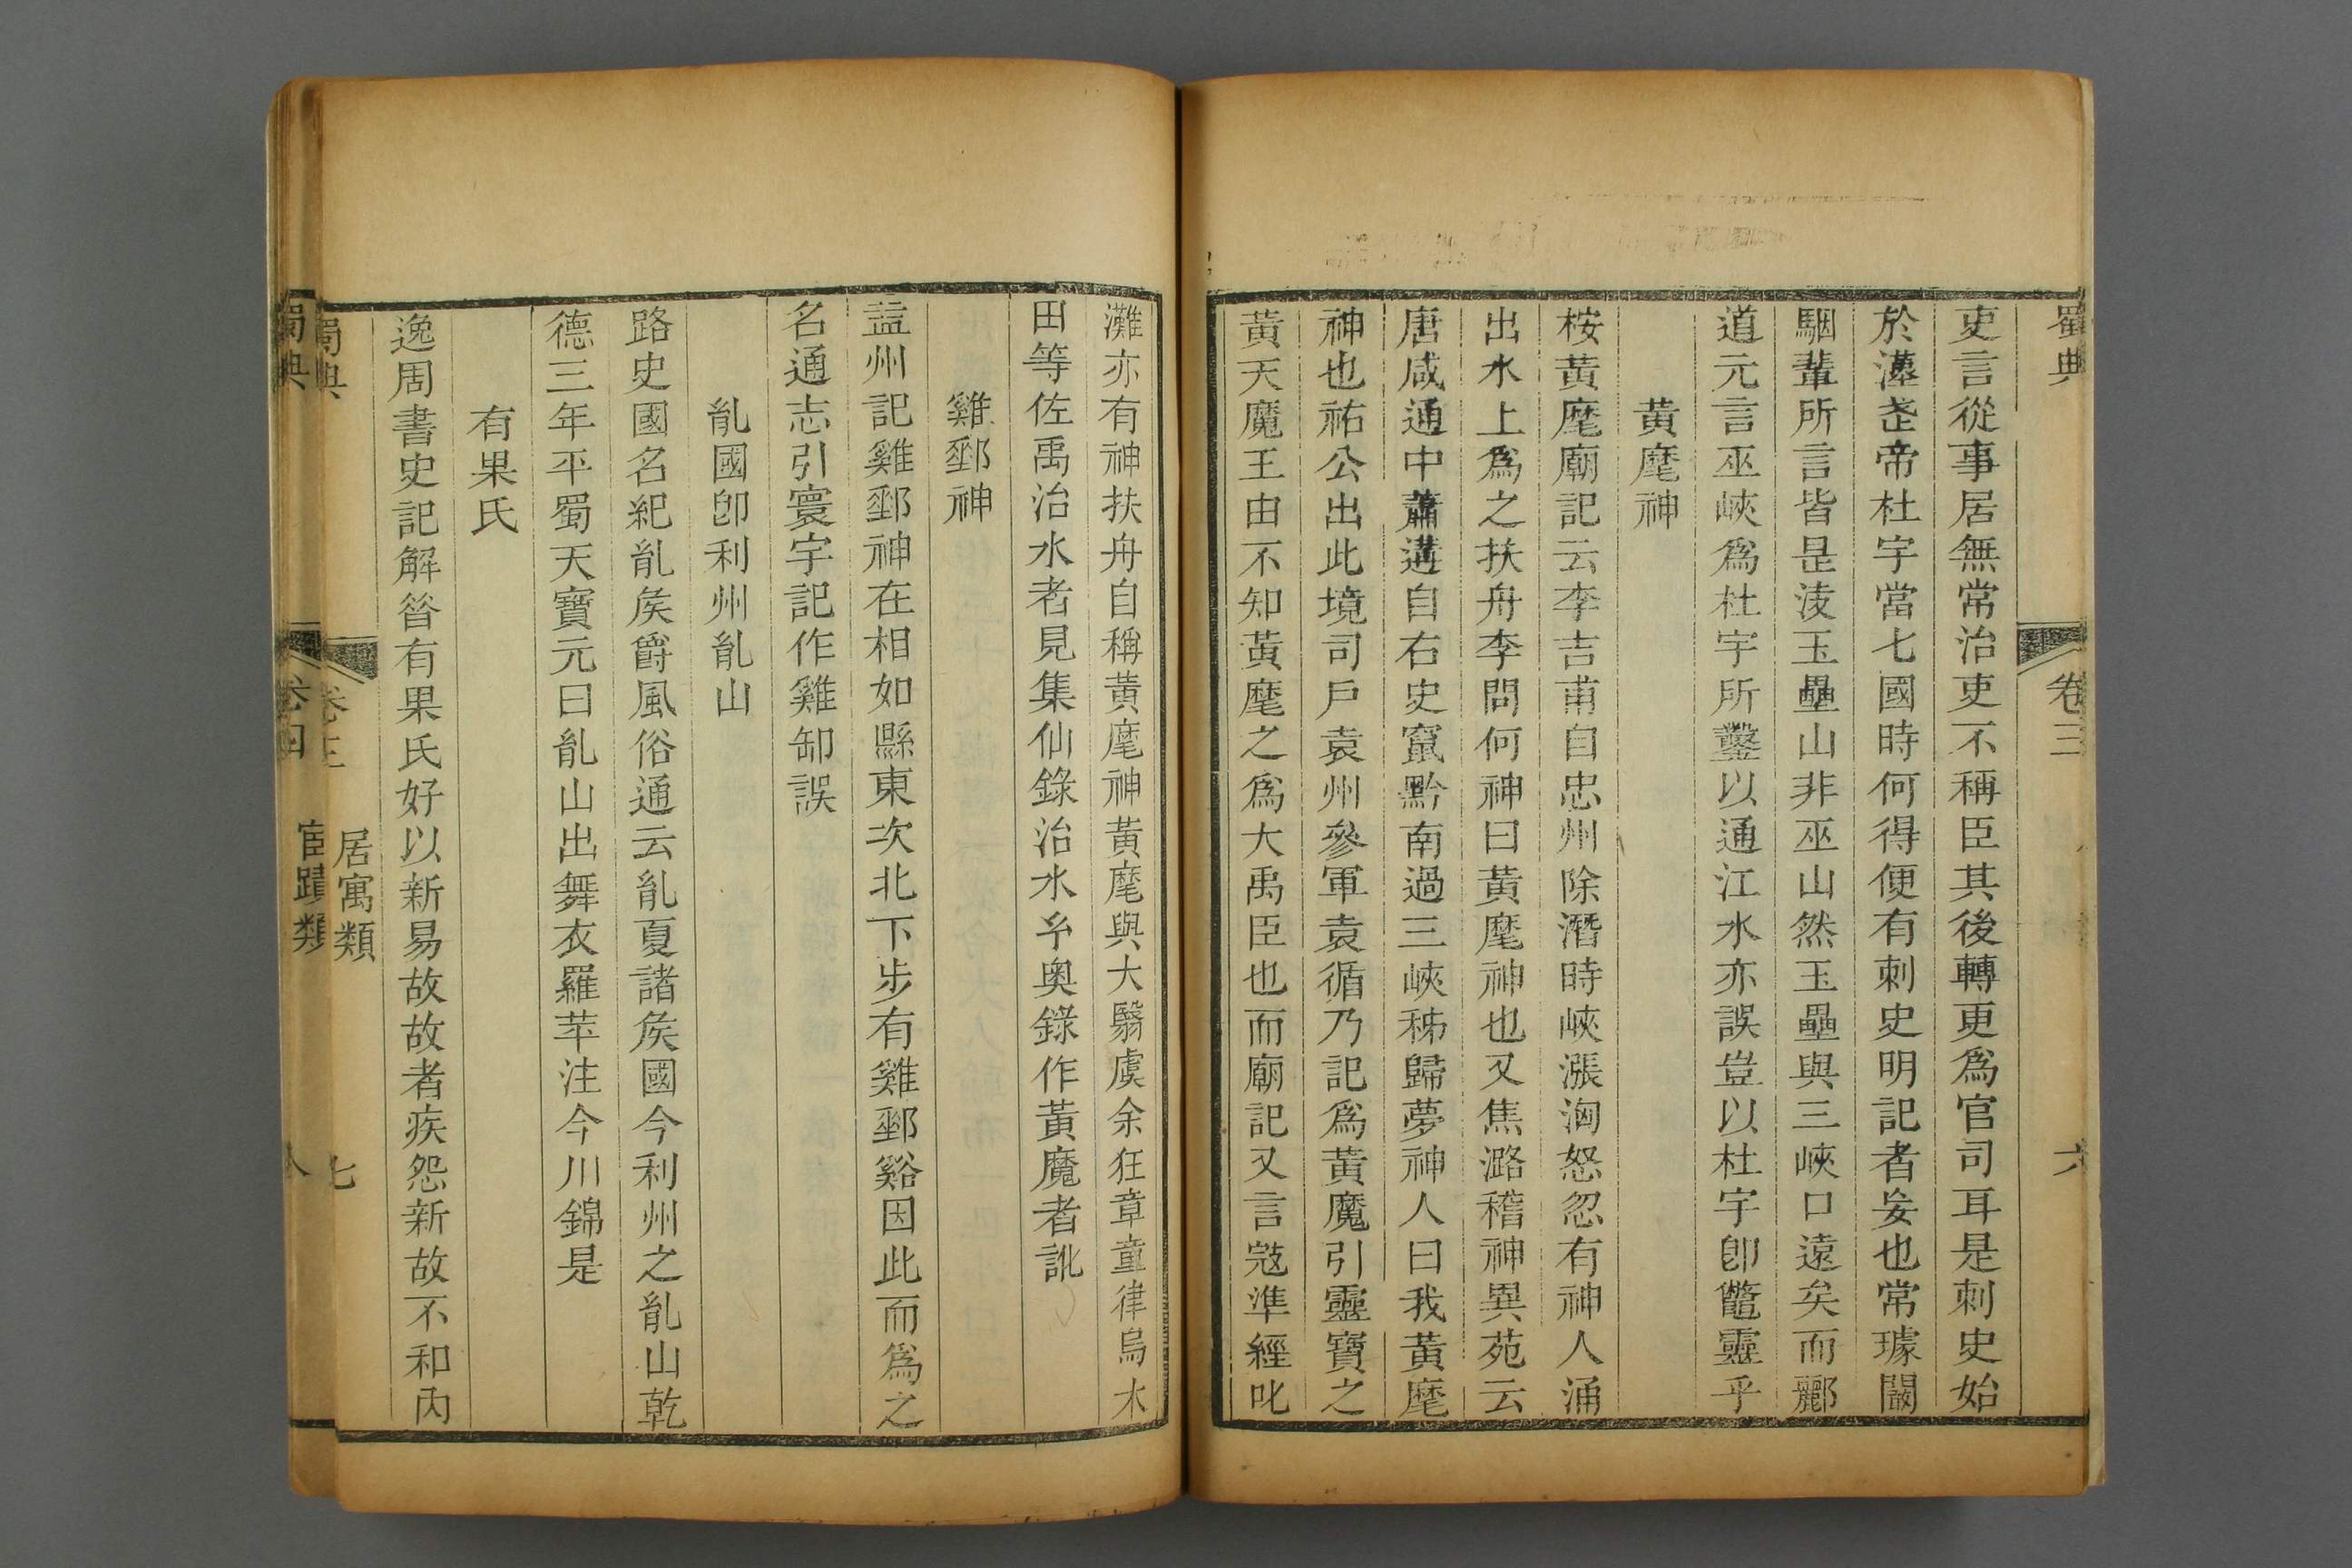 蜀典
卷三
六
吏言從事居無常治吏不稱臣其後轉更爲官司耳是刺史始
於漢𦰏帝杜宇當七國時何得便有刺史明記者妄也常璩闞
駰輩所言皆昰淩玉壘山非巫山然玉壘與三峽口遠矣而酈
道元言巫峽爲杜宇所鑿以通江水亦誤豈以杜宇卽鼈靈乎
黃麾神
桉黃麾廟記云李吉甫自忠州除潛時峽漲洶怒忽有神人涌
出水上爲之扶舟李問何神曰黃麾神也又焦潞稽神異苑云
唐咸通中蕭遘自右史竄黔南過三峽秭歸夢神人曰我黃麾
神也祐公出此境司戶袁州參軍袁循乃記爲黃魔引靈寶之
黃天魔王由不知黃麾之爲大禹臣也而廟記又言寇準經叱
灘亦有神扶舟自稱黃麾神黃麾與大翳虞余狂章童律烏木
田等佐禹治水者見集仙錄治水兮奥錄作黃魔者訛
雞郵神
益州記雞郵神在相如縣東次北下步有雞郵谿因此而爲之
名通志引寰宇記作雞缷誤
亂國卽利州亂山
路史國名紀亂矦爵風俗通云亂夏諸矦國今利州之亂山乾
德三年平蜀天寶元日亂山出舞衣羅苹注今川錦是
有果氏
逸周書史記解昝有果氏好以新易故故者疾怨新故不和內
蜀典
卷三
居寓類
七
蜀典
卷四
宦蹟類
八